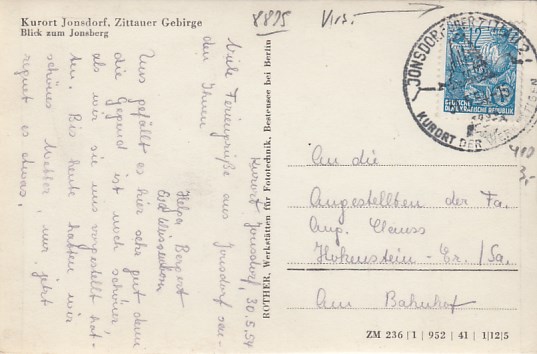 Kurort Jonsdorf, Zittauer Gebirge
Blick zum Jonsberg
8895
Kurort Jonsdorf, 30.5.54
Viele Feriengrüße aus Jonsdorf sen-
den Ihnen
Helga Bergert
Uns gefällt es hier sehr gut denn
die Gegend ist noch schöner,
als wir sie uns vorgestellt hat-
ten. Bis heute hatten wir
schönes Wetter, nur jetzt
regnet es etwas.
ROTHER, Werkstätten für Fototechnik, Bestensee bei Berlin
DEUTSCHE
DEMOKRATISCHE REPUBLIK
KURORT DER
410
3,-
An die
Angestellten der Fa.
Aug. Clauss
Hohenstein-Er./Sa.
Am Bahnhof
ZM 236 | 1 | 952 | 41 | 1|12|5